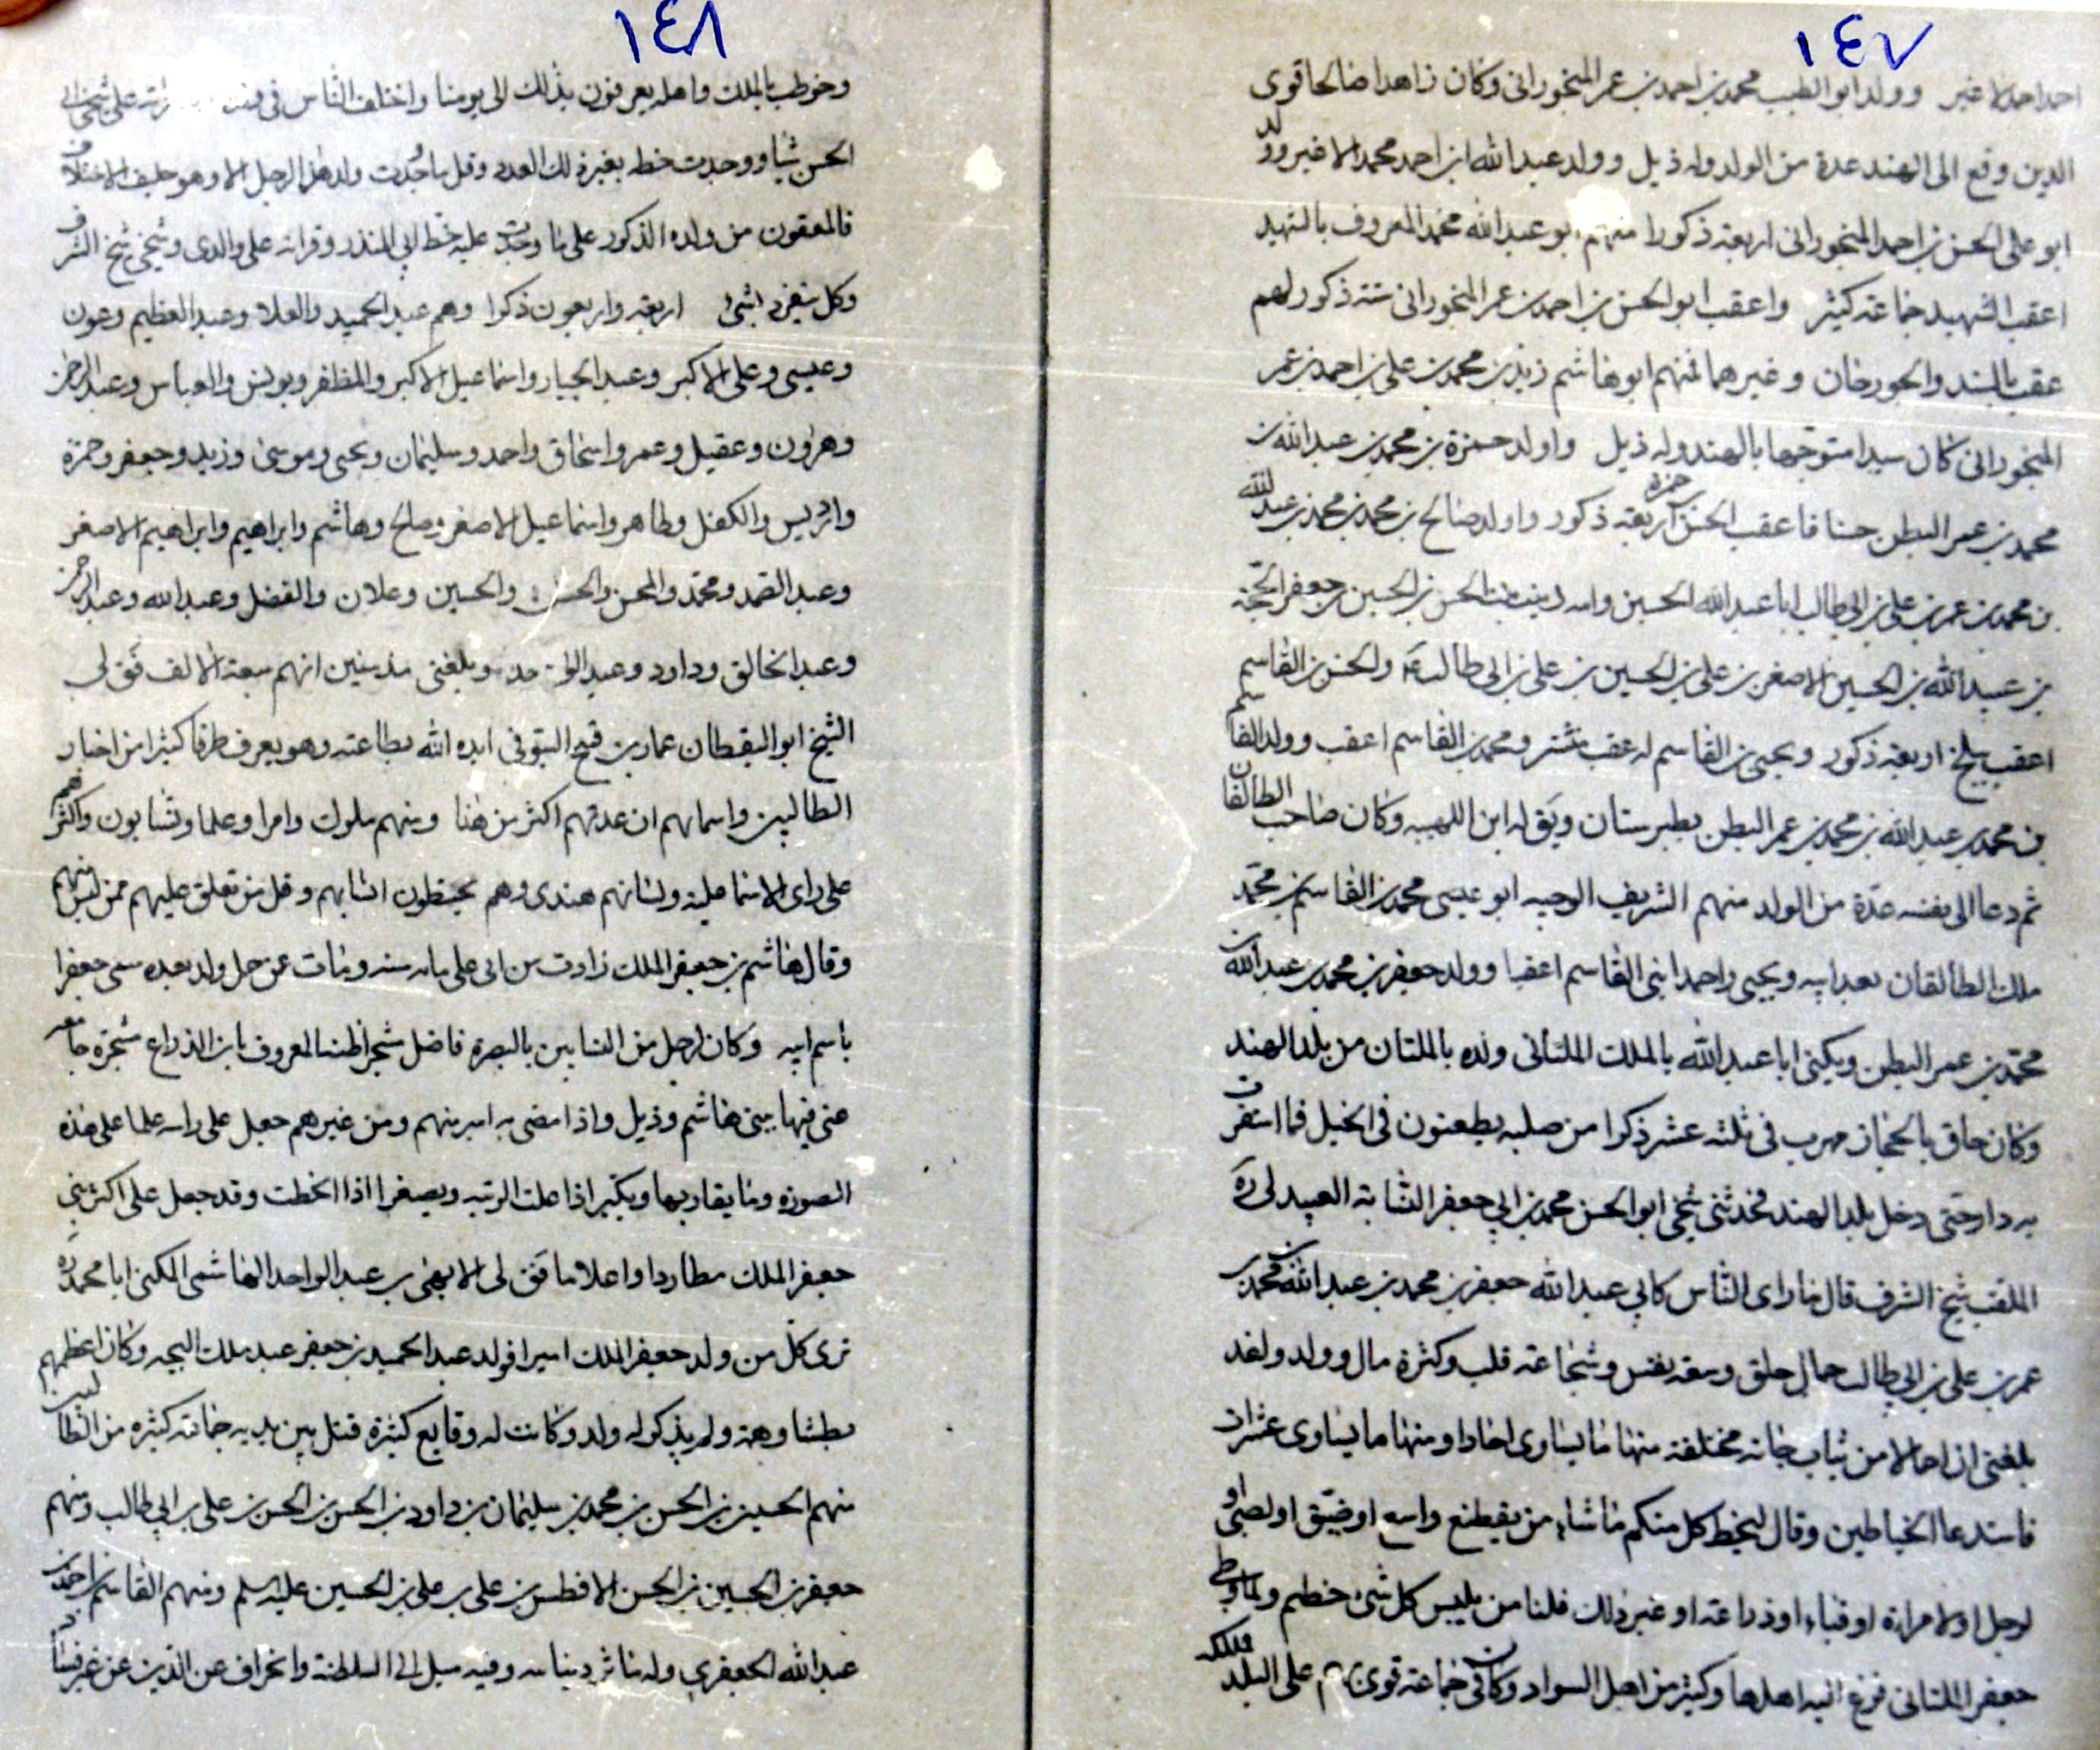 ١٤٧
احدا حدا لا غير وولد ابو الطيب محمد بن احمد بن عمر المنجوراني وكان زاهدا صالحا قوى
الدين وقع الى الهند عدة من الولد وله ذيل وولد عبد الله ابن احمد محمدا لا غير وولد
ابو على الحسن بن احمد المنجورانى اربعة ذكورا منهم ابو عبد الله محمد المعروف بالشهيد
اعقب الشهيد جماعته كثير واعقب ابو الحسن بن احمد بن عمر المنجورانى ستة ذكور لهم
عقب بالسند والجورجان وغيرهما فمنهم ابو هاشم زيد بن محمد بن على بن احمد بن عمر
المنجورانى كان سيدا متوجها بالهند وله ذيل واولد حمزة بن محمد بن عبد الله بن
محمد بن عمر البطن حسنا فاعقب الحسن بن حمزة اربعة ذكور واولد صالح بن محمد بن محمد بن عبد الله
بن محمد بن عمر بن على بن ابى طالب ابا عبد الله الحسين وامه زينب بنت الحسن بن الحسين بن جعفر الحجة
بن عبيد الله بن الحسين الاصغر بن على بن الحسين بن على بن ابى طالب والحسن بن القاسم
اعقب ببلخ اربعة ذكور ويحيى بن القاسم له عقب منتشر ومحمد بن القاسم اعقب وولد القاسم
بن محمد بن عبد الله بن محمد بن عمر البطن بطبرستان ويق له ابن اللهبيه وكان صاحب الطالقان
ثم دعا الى نفسه عدة من الولد منهم الشريف الوجيه ابو عيسى محمد بن القاسم بن محمد
ملك الطالقان بعد ابيه ويحيى واحمد ابنى القاسم اعقبا وولد جعفر بن محمد بن عبد الله بن
محمد بن عمر البطن ويكنى ابا عبد الله بالملك الملتانى ولده بالملتان من بلد الهند
وكان خاف بالحجاز فهرب فى ثلثة عشر ذكرا من صلبه يطعنون فى الخيل فما استقرت
به دار حتى دخل بلد الهند فحدثنى شيخى ابو الحسن محمد بن ابي جعفر النسابة العبيدلى ره
الملقب شيخ الشرف قال ما راى الناس كابي عبد الله جعفر بن محمد بن عبد الله بن محمد بن
عمر بن على بن ابي طالب جمال خلق وسعه نفس وشجاعته قلب وكثرة مال وولد ولقد
بلغنى ان احمالا من ثياب جاته مختلفة منها ما يساوى احادا ومنها ما يساوى عشرات
فاستدعا الخياطين وقال ليخط كل منكم ما شاء من يقطع واسع او ضيق او لصبى او
لرجل او لامراة او قباء او ذراعته او غير ذلك فلنا من يلبس كل شئ خطتم ولما وطى
جعفر الملتانى فزع اليه اهلها وكثير من اهل السواد وكان فى جماعته قوى بهم على البلد فملكه
١٤٨
وخوطب بالملك واهله يعرفون بذلك الى يومنا واختلف الناس فى على شيخى ابي
الحسن شيئا ووجدت خطه بغير ذلك العدد وقل ما وجدت ولد هذا الرجل الا وهو حليف الاختلاف
فالمعقبون من ولده الذكور على ما وجدت عليه خط ابي المنذر وقراته على والدى وشيخى شيخ الشرف
وكل ينفرد بشئ اربعة واربعون ذكرا وهم عبد الحميد والعلا وعبد العظيم وعون
وعيسى وعلى الاكبر وعبد الجبار واسماعيل الاكبر والمظفر ويونس والعباس وعبد الرحمن
وهرون وعقيل وعمر واسحاق واحمد وسليمان ويحيى وموسى وزيد وجعفر وحمزة
وادريس والكفل وطاهر واسماعيل الاصغر وصالح وهاشم وابراهيم وابراهيم الاصغر
وعبد الصمد ومحمد والمحسن والحسن والحسين وعلان والفضل وعبد الله وعبد الرحمن
وعبد الخالق وداود وعبد الواحد وبلغنى مذ سنين انهم سبعة الالف فق لى
الشيخ ابو اليقظان عمار بن فتح السيوفى ايده الله بطاعته وهو يعرف طرفا كثيرا من اخبار
الطالبين واسمائهم ان عدتهم اكثر من هذا ومنهم ملوك وامرا وعلما ونسابون واكثرهم
على راى الاسماعيلية ولسانهم هندى وهم يحفظون انسابهم وقل من تعلق عليهم ممن ليس منهم
وقال هاشم بن جعفر الملك زادت سن ابى على مائه سنه ومات عن حمل ولد بعده سمى جعفرا
باسم ابيه وكان لرجل من النسابين بالبصرة فاضل شجراطننا المعروف بابن الذراع شجرة جامعه
عنى فيها ببنى هاشم وذيل واذا مضى به امير منهم ومن غيرهم جعل على راسه علما على هذه
الصورة وما يقاربها ويكبر اذا علت الرتبه ويصغر اذا انحطت وقد جعل على اكثر بنى
جعفر الملك مطاردا واعلاما فق لى الا بنى بن عبد الواحد الهاشمى المكنى ابا محمد ره
ترى كل من ولد جعفر الملك اميرا فولد عبد الحميد بن جعفر عبد ملك اليجه وكان اعظمهم
بطشا وهمة ولم يذكر له ولد وكانت له وقايع كثيرة قتل بين يديه جماعته كثيره من الطالبين
منهم الحسين بن الحسن بن محمد بن سليمان بن داود بن الحسن بن الحسن بن على بن ابي طالب ومنهم
جعفر بن الحسين بن الحسن الافطس بن على بن على بن الحسين عليه سلم ومنهم القاسم بن احمد بن
عبد الله الجعفري وله ماثر دينا سه وفيه ميل الى السلطنة وانحراف عن الدين عن غير نيتنا